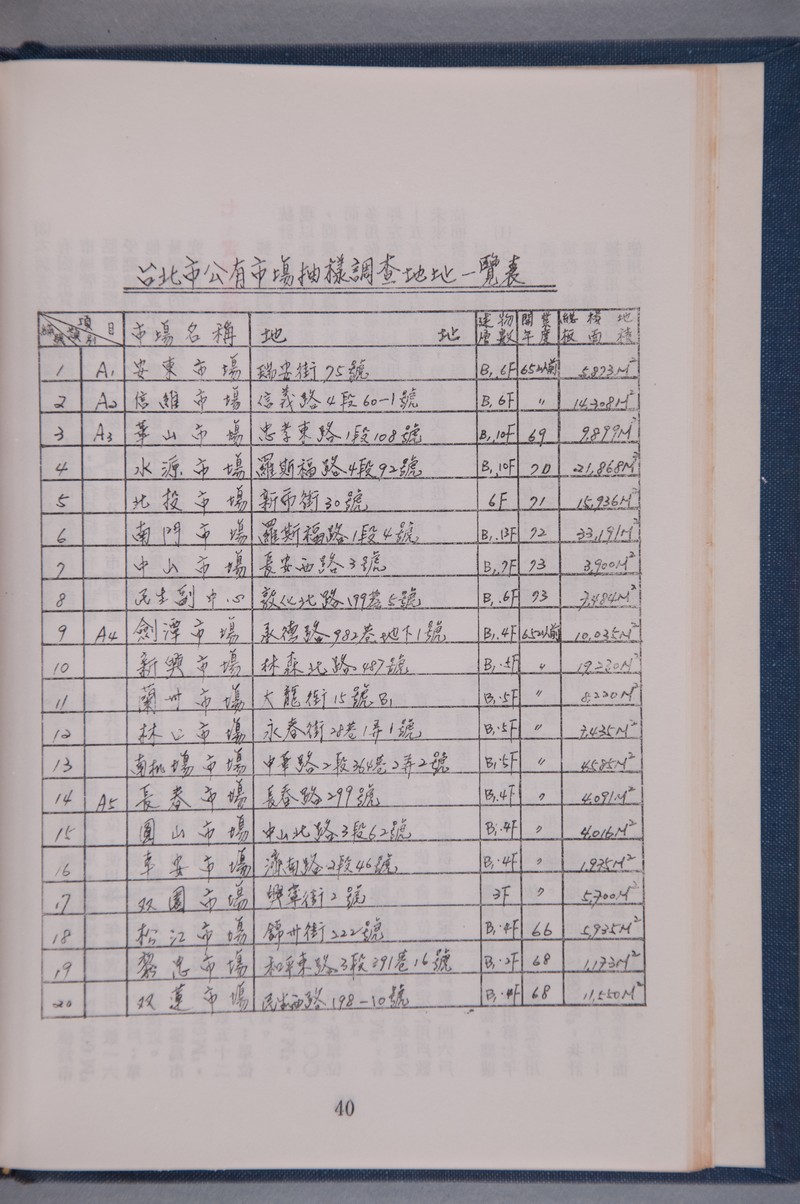 台北市公有市場抽樣調查地址一覽表
編號 類別 項目 市場名稱 地址 建物層數 開業年度 總樓地板面積
1 A1 安東市場 瑞安街75號 B1.6F 65以前 5,873M²
2 A2 信維市場 信義路4段60-1號 B1.6F 〃 14,308M²
3 A3 華山市場 忠孝東路1段108號 B1.10F 69 9,899M²
4 水源市場 羅斯福路4段92號 B1.10F 70 21,868M²
5 北投市場 新市街30號 6F 71 15,936M²
6 南門市場 羅斯福路1段4號 B1.13F 72 33,191M²
7 中山市場 長安西路3號 B1.7F 73 3,900M²
8 民生副中心 敦化北路199巷5號 B1.6F 73 7,484M²
9 A4 劍潭市場 承德路982巷地下1號 B1.4F 65以前 10,035M²
10 新興市場 林森北路487號 B1.5F 〃 19,230M²
11 蘭州市場 大龍街15號B1 B1.5F 〃 8,220M²
12 林口市場 永春街28巷1弄1號 B1.5F 〃 7,435M²
13 南機場市場 中華路2段364巷2弄2號 B1.5F 〃 4,585M²
14 A5 長春市場 長春路299號 B1.4F 〃 4,091M²
15 圓山市場 中山北路3段62號 B1.4F 〃 4,016M²
16 幸安市場 濟南路2段46號 B1.4F 〃 1,975M²
17 双園市場 興寧街2號 3F 〃 5,700M²
18 松江市場 錦州街222號 B1.4F 66 5,935M²
19 黎忠市場 和平東路3段391巷16號 B1.2F 68 1,173M²
20 双蓮市場 民生西路198-10號 B1.4F 68 11,550M²
40